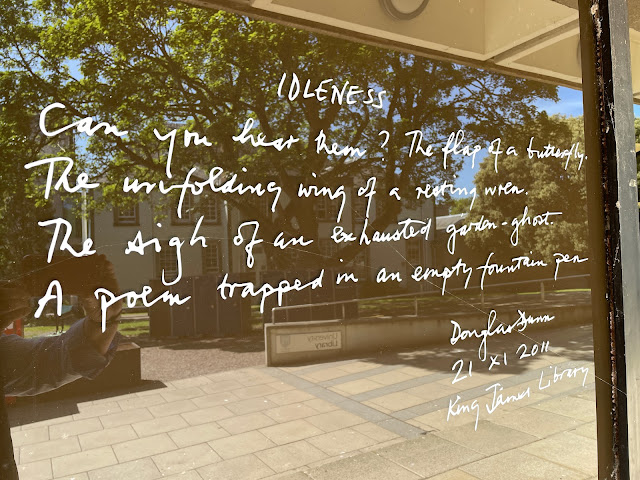 IDLENESS
Can you hear them? The flap of a butterfly.
The unfolding wing of a resting wren.
The sigh of an exhausted garden-ghost.
A poem trapped in an empty fountain pen
Douglas Dunn
21 XI 2011
King James Library
University
Library